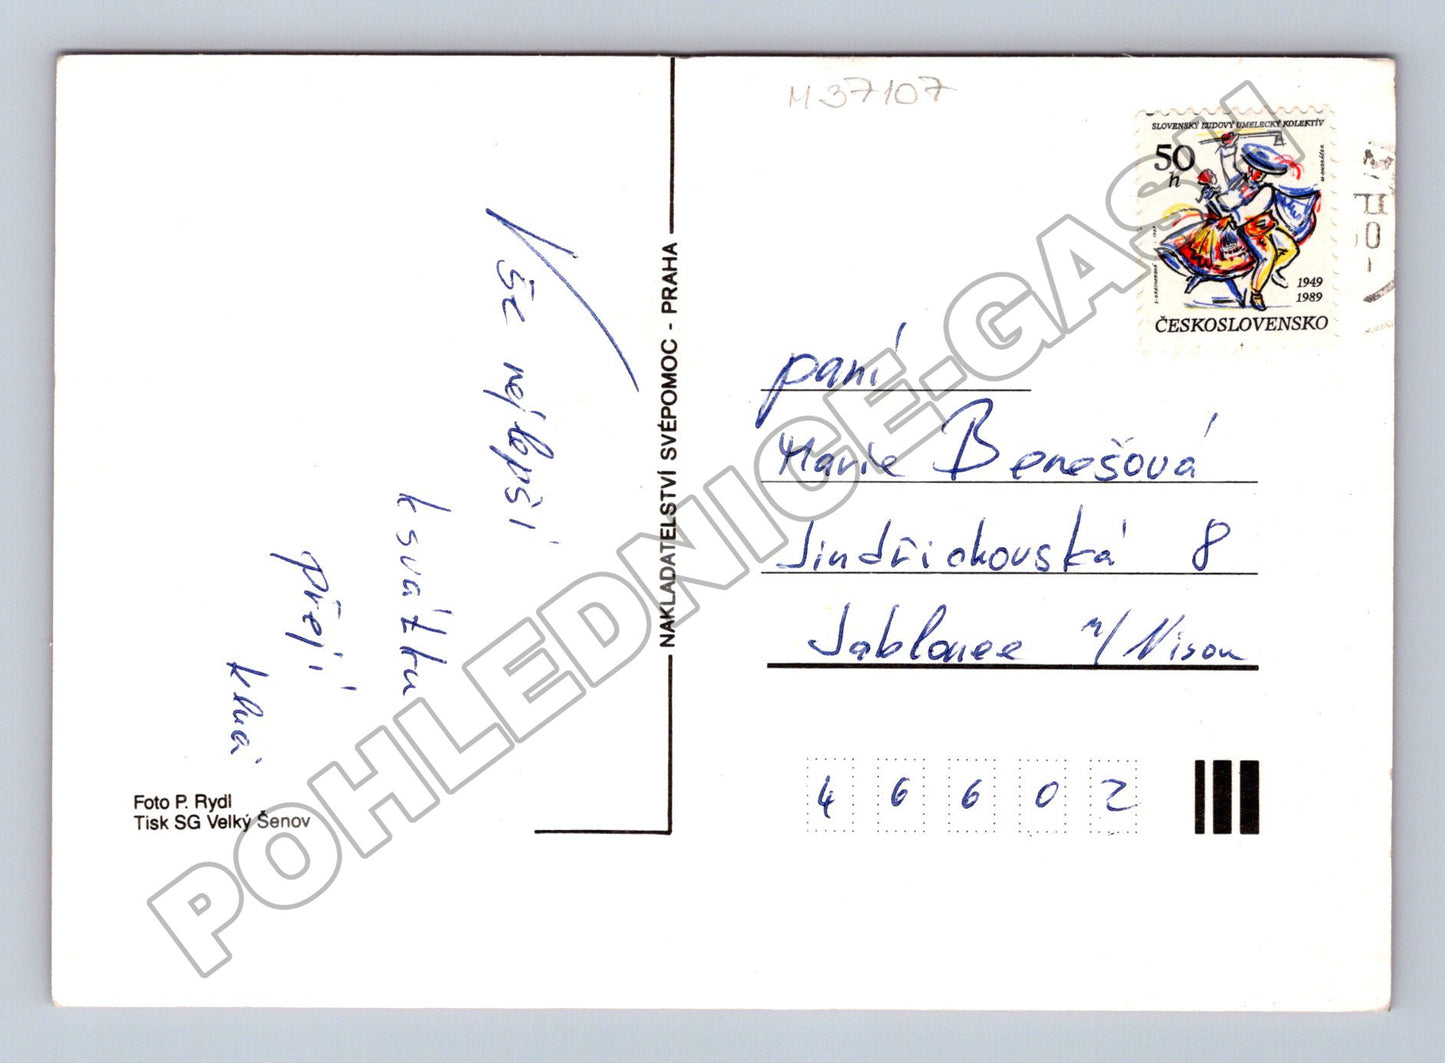 M 37107
SLOVENSKÝ ĽUDOVÝ UMELECKÝ KOLEKTÍV
50
h
1949
1989
ČESKOSLOVENSKO
Vše nejlepší
k svátku
přejí
NAKLADATELSTVÍ SVÉPOMOC - PRAHA
paní
Marie Benešová
Jindřichovská 8
Jablonec n/Nisou
46602
Foto P. Rydl
Tisk SG Velký Šenov
POHLEDNICE-GASH